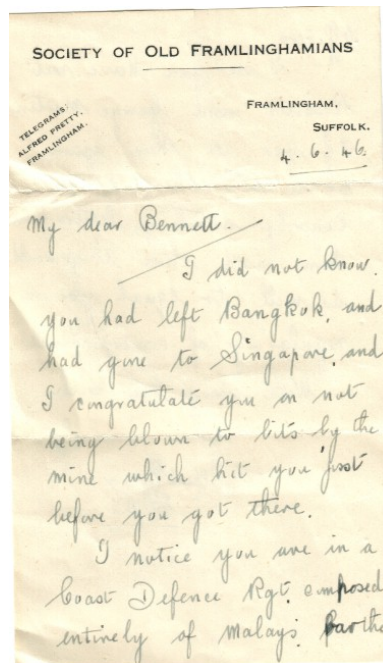 SOCIETY OF OLD FRAMLINGHAMIANS
TELEGRAMS:
ALFRED PRETTY,
FRAMLINGHAM.
FRAMLINGHAM,
SUFFOLK.
4. 6. 46
My dear Bennett.
I did not know.
you had left Bangkok, and
had gone to Singapore, and
I congratulate you on not
being blown to bits by the
mine which hit you just
before you got there.
I notice you are in a
Coast Defence Rgt. composed
entirely of Malays.